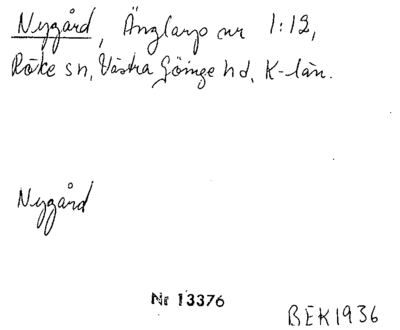 Nygård, Änglarp nr 1:12,
Röke sn, Västra Göinge hd, K-län.
Nygård
Nr 13376
BEK1936